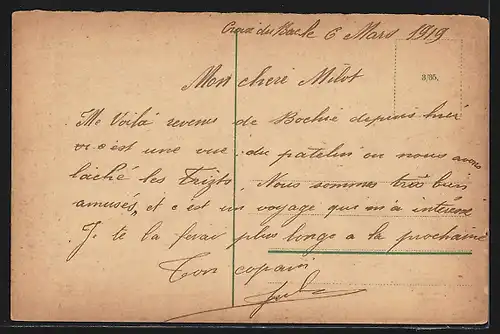 Croix du Bac le 6 Mars 1919
3/85.
Mon cheré Milot
Me Voilà revenu de Bochie depuis hier
c'est une vue du patelin ou nous avons
laché les Frizts. Nous sommes très bien
amusés, et c'est un voyage que m'a intéressé
Je te la ferai plus longe a la prochaine
Ton copain